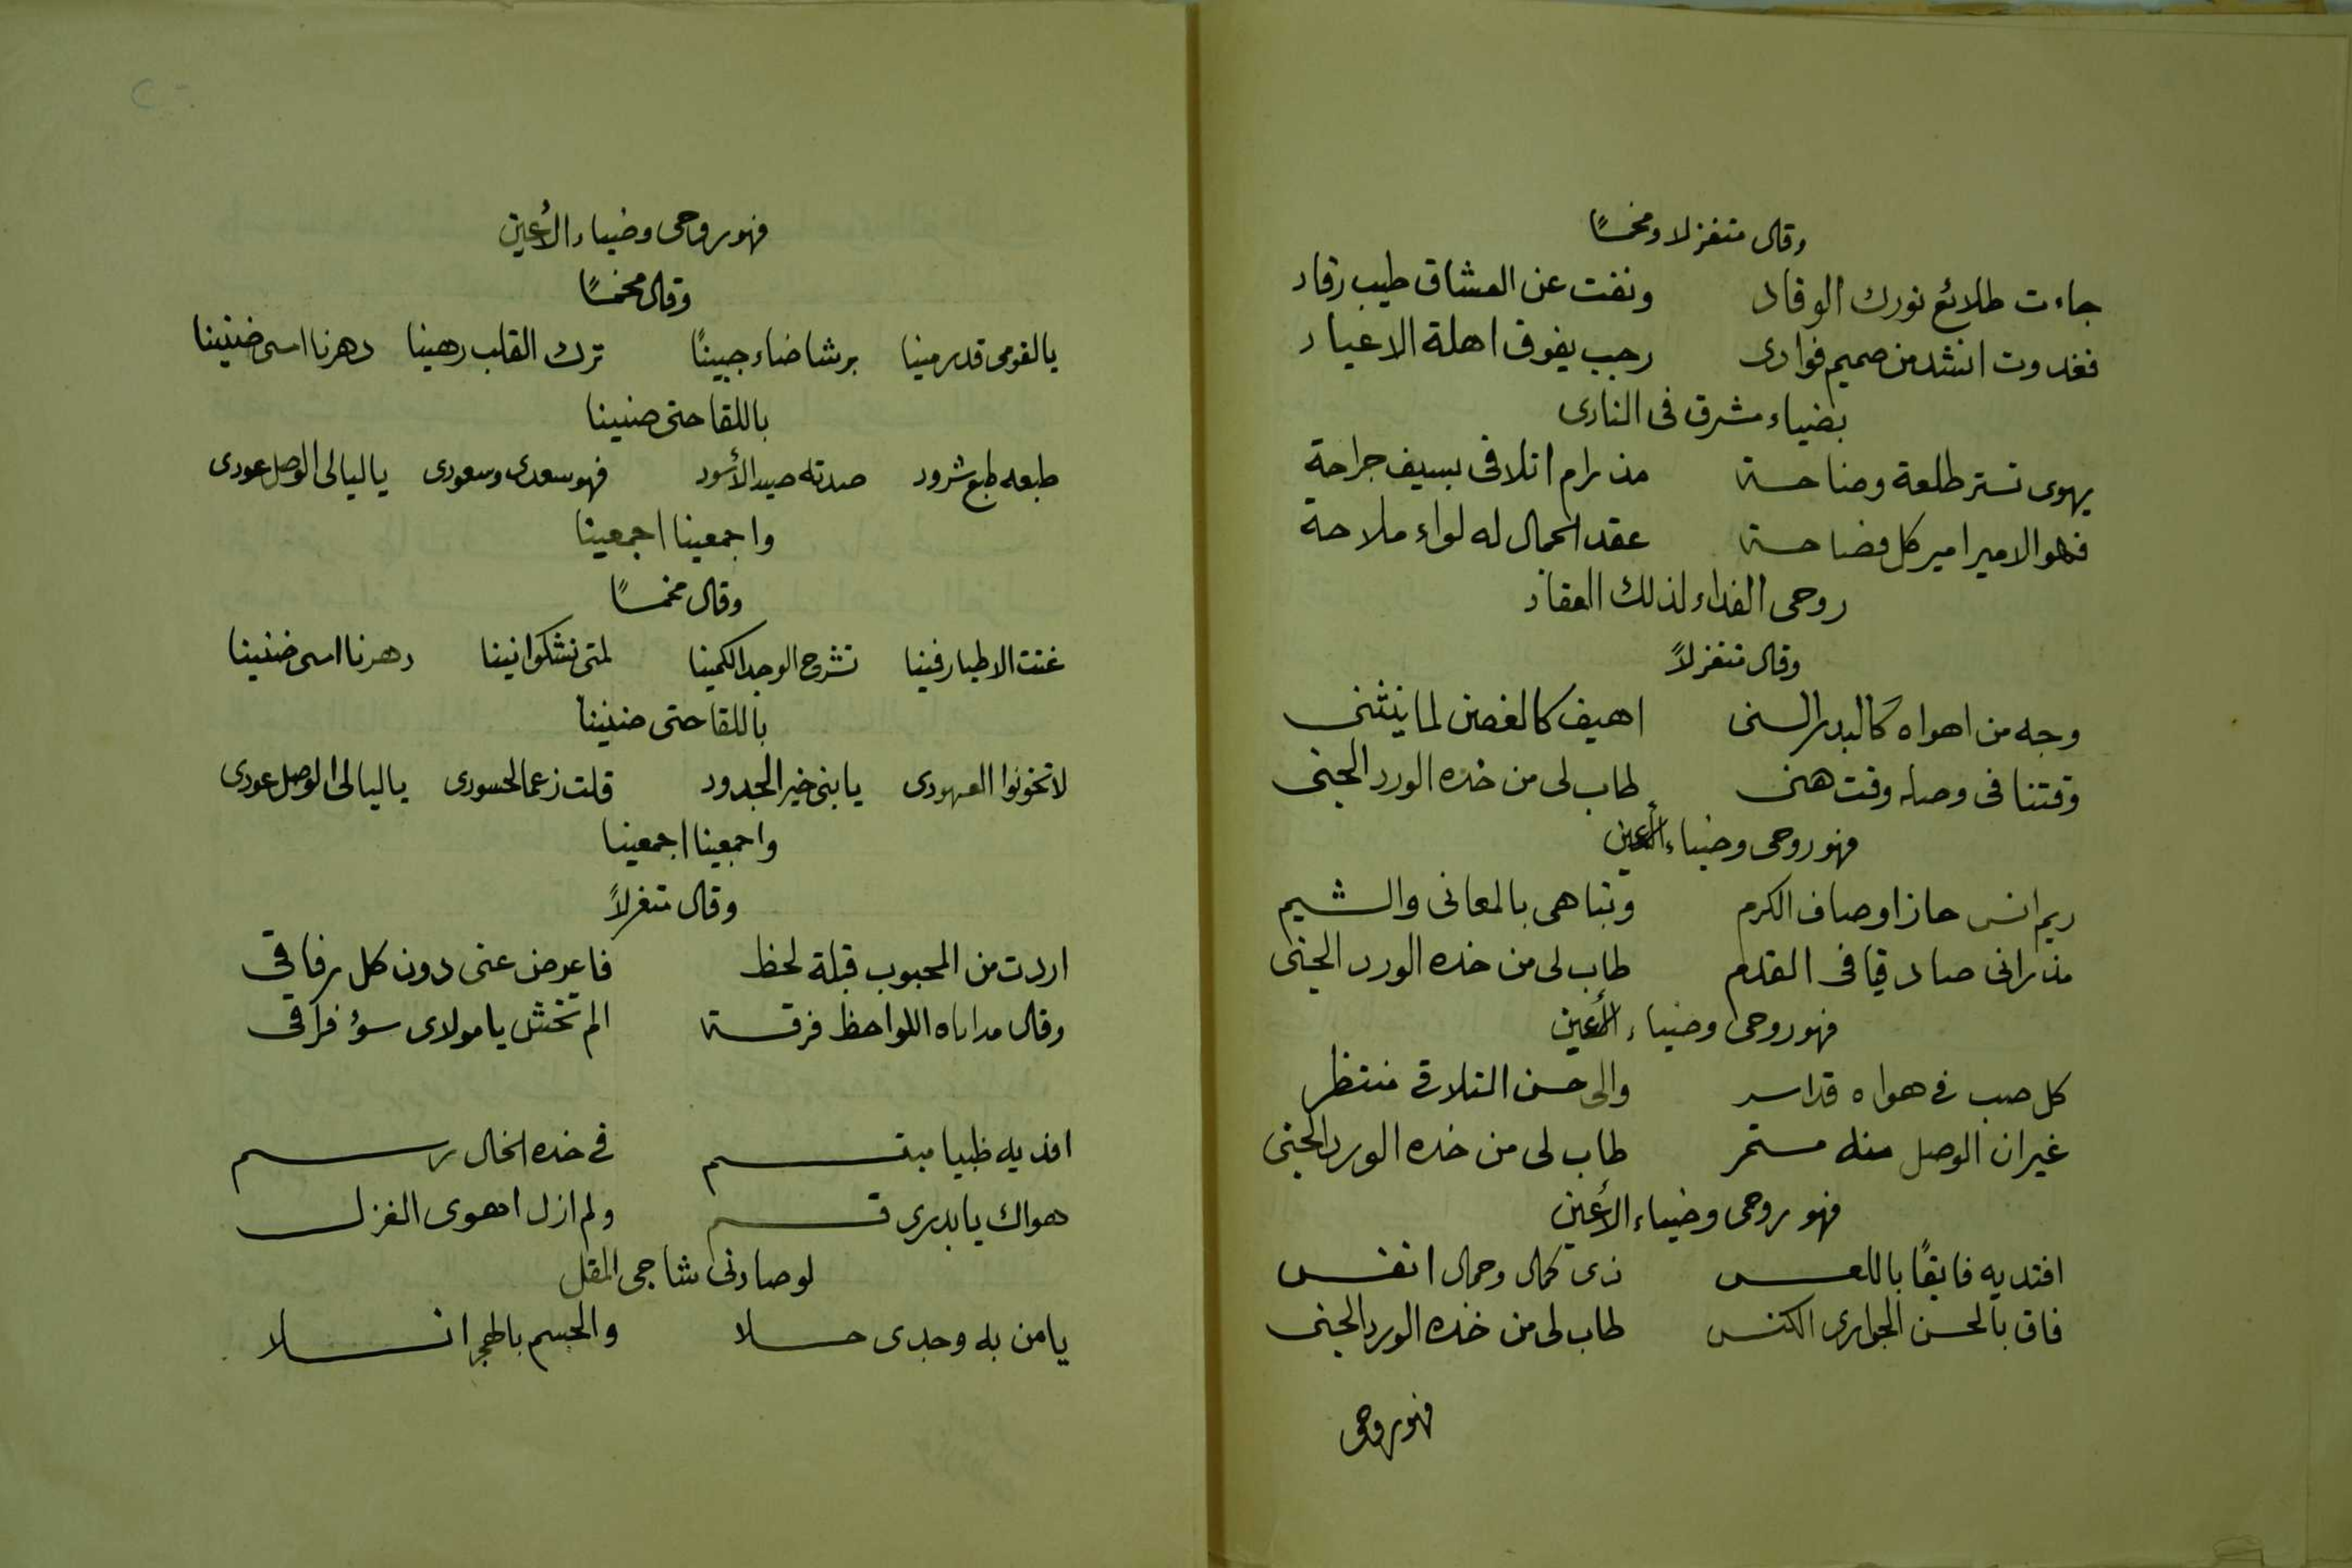 وقال متغزلا ومخمسًا
جاءت طلائع نورك الوقاد ونفت عن العشاق طيب رقاد
فغدوت انشد من صميم فوادى رجب يفوق اهلة الاعياد
بضياء مشرق فى النادى
يهوى تستر طلعة وصباحة مذ رام اتلافى بسيف جراحة
فهو الامير امير كل فصاحة عقد الجمال له لواء ملاحة
روحى الفداء لذلك العقاد
وقال متغزلاً
وجه من اهواه كالبدر السنى اهيف كالغصن لما ينثنى
وقتنا فى وصله وقت هنى طاب لى من خده الورد الجنى
فهو روحى وضياء الأعين
ريم انس حاز اوصاف الكرم وتباهى بالمعانى والشيم
مذ رانى صادقا فى القدم طاب لى من خده الورد الجنى
فهو روحى وضياء الأعين
كل صب فى هواه قد اسر والى حسن التلاقى منتظر
غير ان الوصل منه مستمر طاب لى من خده الورد الجنى
فهو روحى وضياء الأعين
افتديه فايقًا باللعس ذى كمال وجمال انفس
فاق بالحسن الجوارى الكنس طاب لى من خده الورد الجنى
فهو روحى
فهو روحى وضياء الأعين
وقال مخمسًا
يا لقومى قد رمينا برشا ضاء جبينًا ترك القلب رهينا دهرنا اسى ضنينا
باللقا حتى ضنينا
طبعه طبع شرود صدته صيد الأسود فهو سعدى وسعودى يا ليالى الوصل عودى
واجمعينا اجمعينا
وقال مخمسًا
غنت الاطيار فينا تشرح الوجد الكمينا لمتى نشكوا نينا دهرنا اسى ضنينا
باللقا حتى ضنينا
لا تخونوا العهودى يا بنى خير الجدود قلت زعما لحسودى يا ليالى الوصل عودى
واجمعينا اجمعينا
وقال متغزلاً
اردت من المحبوب قبلة لحظ فاعرض عنى دون كل رفاقى
وقال اللواحظ فرقة الم تخش يا مولاى سؤ فراقى
افديه ظبيا مبتسم فى خده الخال رسم
هواك يا بدرى قسم ولم ازل اهوى الغزل
لو صادنى شاجى المقل
يا من به وجدى حلا والجسم بالهجر انسلا